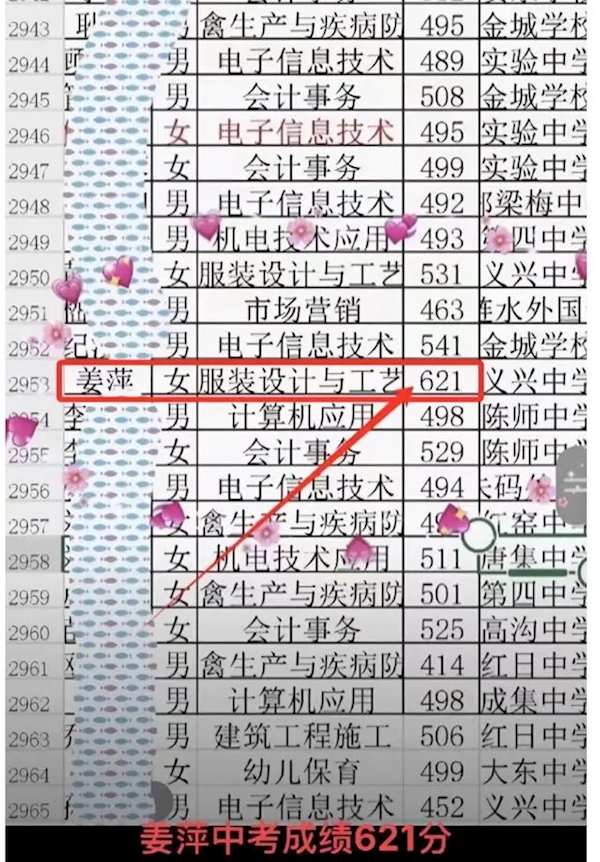 2943 职 男 禽生产与疾病防 495 金城学校
2944 顾 男 电子信息技术 489 实验中学
2945 男 会计事务 508 金城学校
2946 女 电子信息技术 495 实验中学
2947 女 会计事务 499 实验中学
2948 男 电子信息技术 492 郑梁梅中
2949 男 机电技术应用 493 第四中学
2950 女 服装设计与工艺 531 义兴中学
2951 男 市场营销 463 涟水外国
2952 纪 男 电子信息技术 541 金城学校
2953 姜萍 女 服装设计与工艺 621 义兴中学
2954 李 男 计算机应用 498 陈师中学
2955 李 女 会计事务 529 陈师中学
2956 男 电子信息技术 494
2957 女 禽生产与疾病防 红窑中学
2958 女 机电技术应用 511 唐集中学
2959 女 禽生产与疾病防 501 第四中学
2960 女 会计事务 525 高沟中学
2961 男 禽生产与疾病防 414 红日中学
2962 男 计算机应用 498 成集中学
2963 男 建筑工程施工 506 红日中学
2964 女 幼儿保育 499 大东中学
2965 男 电子信息技术 452 义兴中学
姜萍中考成绩621分